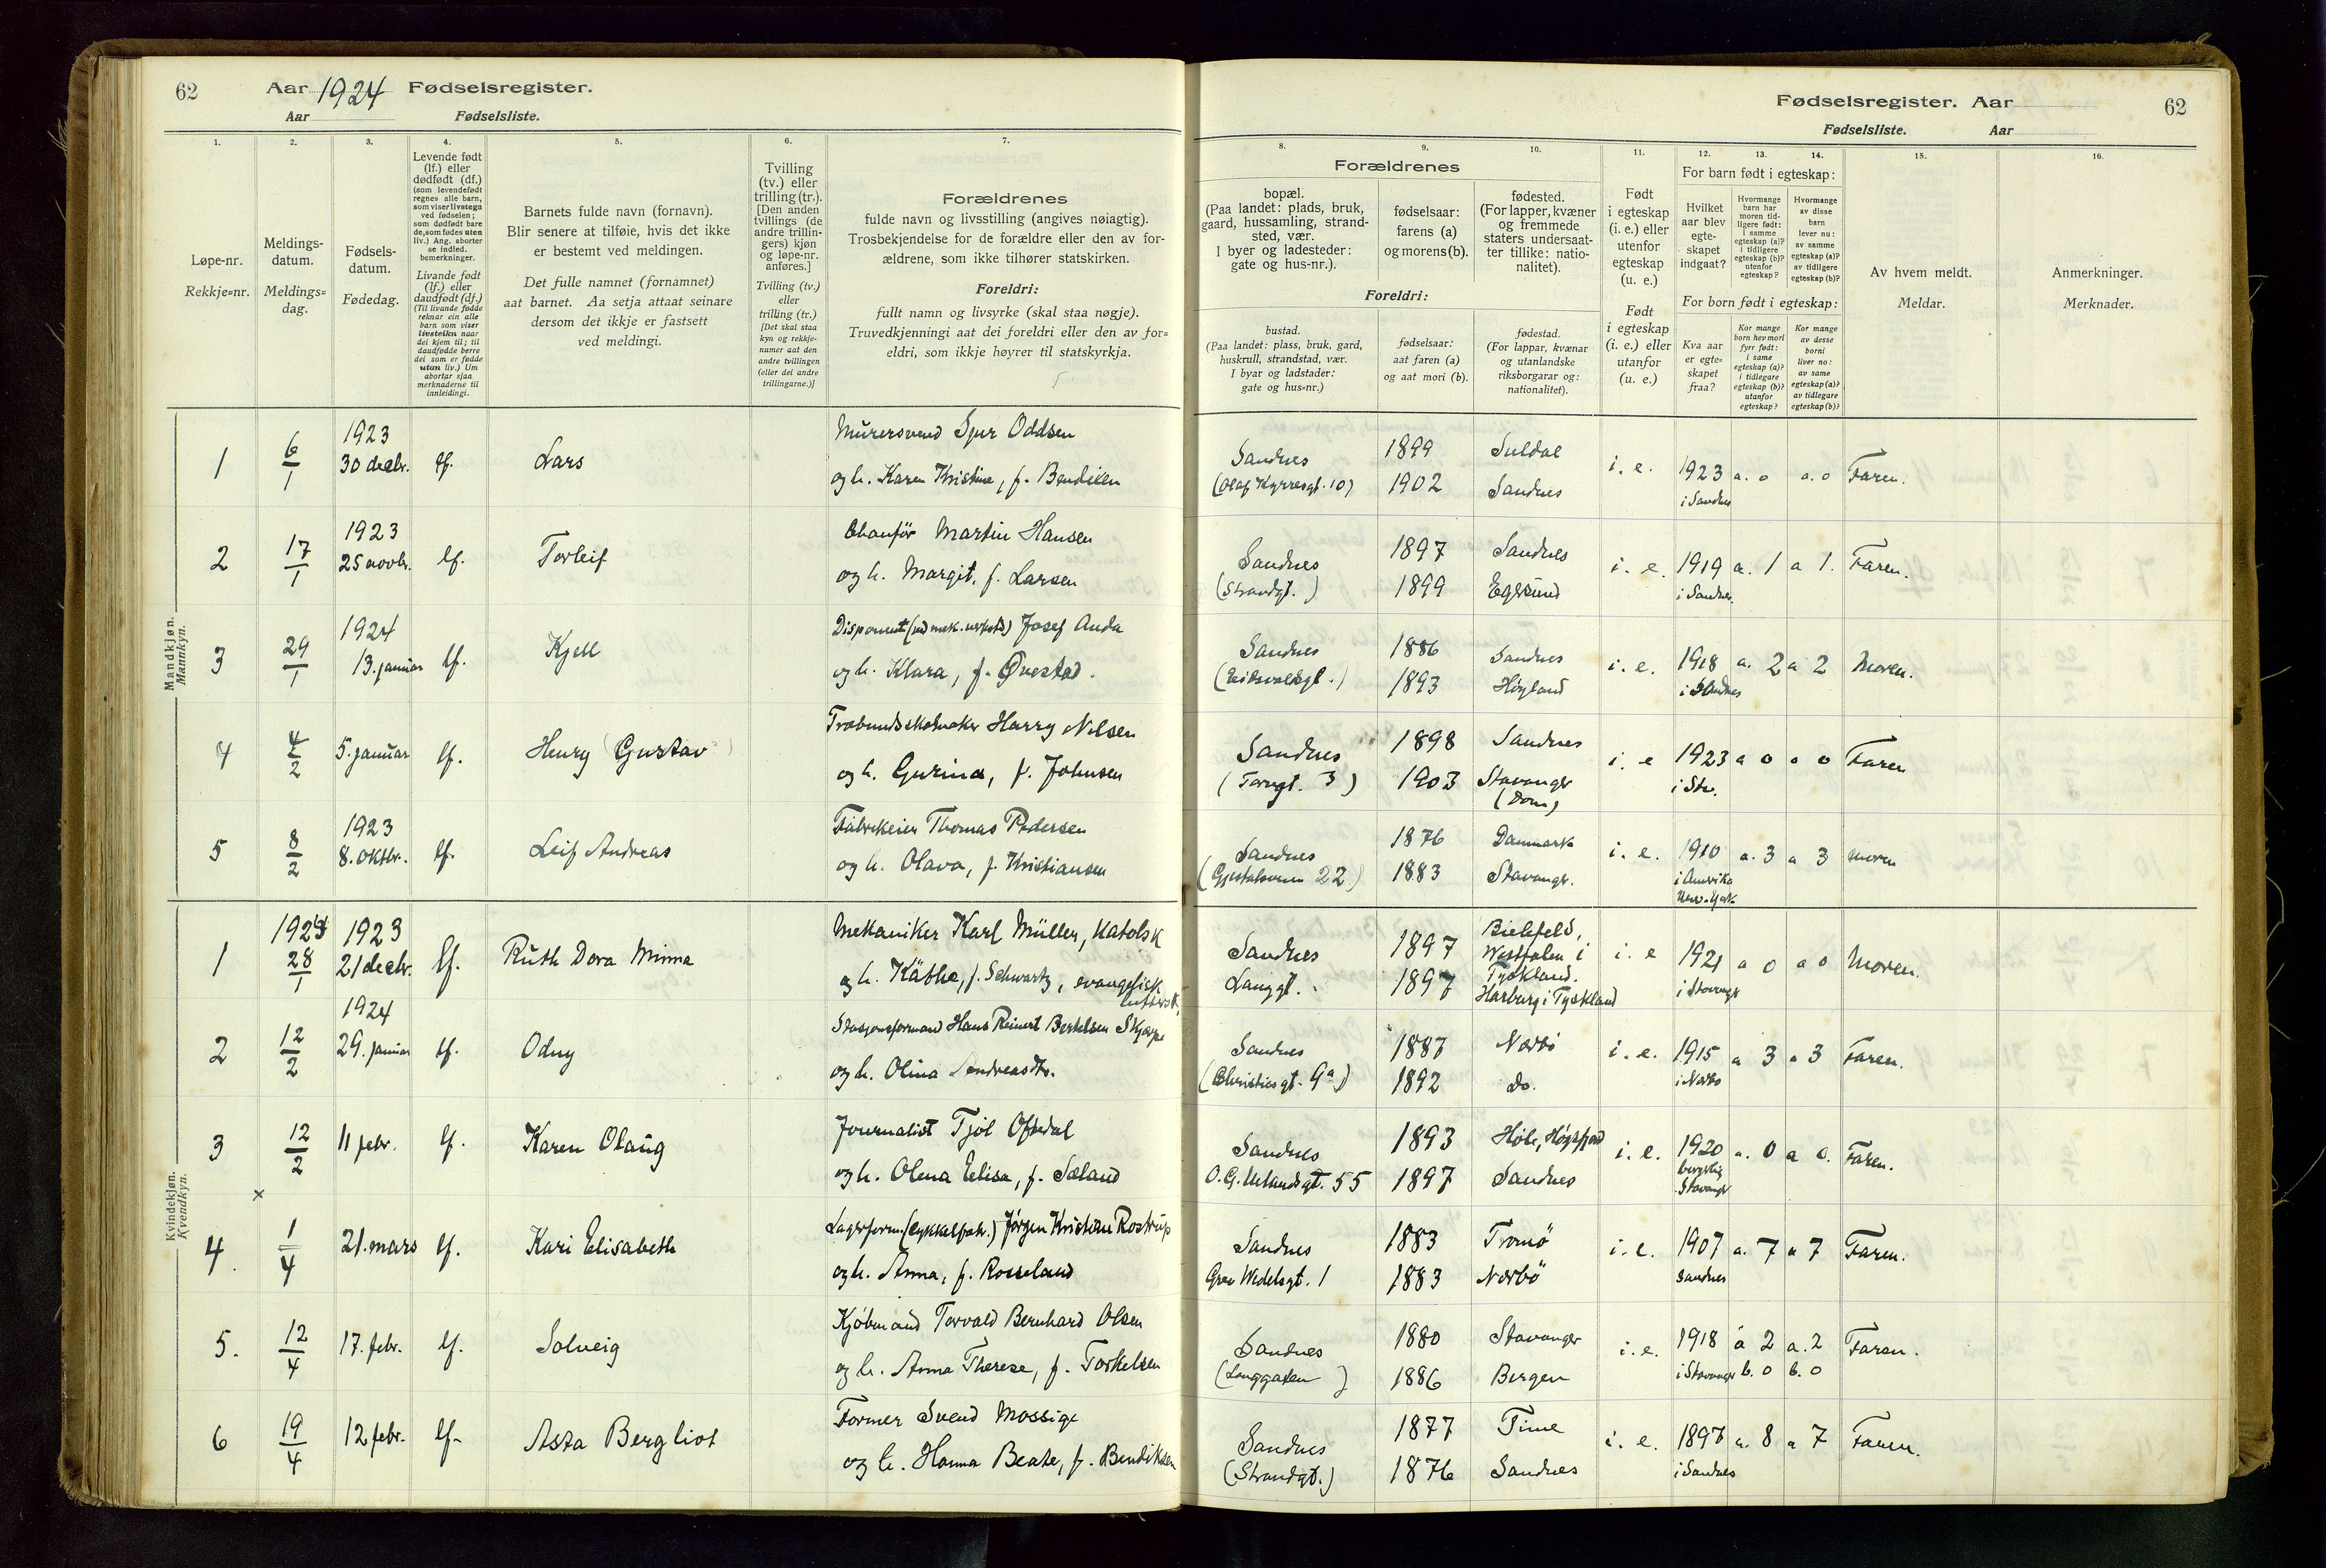 62
Aar 1924 Fødselsregister.
Aar Fødselsliste.
1.
2.
3.
4.
5.
6.
7.
Løpe-nr.
Rekkje=nr.
Meldings-
datum.
Meldings=
dag.
Fødsels-
datum.
Fødedag.
Levende født
(lf.) eller
dødfødt (df.)
(som levendefødt
regnes alle barn,
som viser livstegn
ved fødselen;
som dødfødt bare
de, som fødes uten
liv.) Ang. aborter
se indled.
bemerkninger.
Livande født
(lf.) eller
daudfødt (df.)
(Til livande fødde
reknar ein alle
barn som viser
livsteikn naar
dei kjem til; til
daudfødde berre
dei som er fødde
utan liv.) Um
abortar sjaa
merknaderne til
innleidingi.
Barnets fulde navn (fornavn).
Blir senere at tilføie, hvis det ikke
er bestemt ved meldingen.
Det fulle namnet (fornamnet)
aat barnet. Aa setja attaat seinare
dersom det ikkje er fastsett
ved meldingi.
Tvilling
(tv.) eller
trilling (tr.).
[Den anden
tvillings (de
andre trillin-
gers) kjøn
og løpe-nr.
anføres.]
Tvilling (tv.)
eller
trilling (tr.)
[Det skal staa
kyn og rekkje-
numer aat den
andre tvillingen
(eller dei andre
trillingarne.)]
Forældrenes
fulde navn og livsstilling (angives nøiagtig).
Trosbekjendelse for de forældre eller den av for-
ældrene, som ikke tilhører statskirken.
Foreldri:
fullt namn og livsyrke (skal staa nøgje).
Truvedkjenningi aat dei foreldri eller den av for=
eldri, som ikkje høyrer til statskyrkja.
Fødselsregister. Aar 62
Fødselsliste. Aar
8.
9.
10.
11.
12.
13.
14.
15.
16.
Forældrenes
bopæl.
(Paa landet: plads, bruk,
gaard, hussamling, strand-
sted, vær.
I byer og ladesteder:
gate og hus-nr.).
fødselsaar:
farens (a)
og morens (b).
fødested.
(For lapper, kvæner
og fremmede
staters undersaat-
ter tillike: natio-
nalitet).
Foreldri:
bustad.
(Paa landet: plass, bruk, gard,
huskrull, strandstad, vær.
I byar og ladstader:
gate og hus=nr.)
fødselsaar:
aat faren (a)
og aat mori (b).
fødestad.
(For lappar, kvænar
og utanlandske
riksborgarar og:
nationalitet).
Født
i egteskap
(i. e.) eller
utenfor
egteskap
(u. e.)
Født
i egteskap
(i. e.) eller
utanfor
(u. e.)
For barn født i egteskap:
Hvilket
aar blev
egte-
skapet
indgaat?
Hvormange
barn har
moren tid-
ligere født:
i samme
egteskap (a)?
i tidligere
egteskap (b)?
utenfor
egteskap?
Hvormange
av disse
barn
lever nu:
av samme
egteskap (a)?
av tidligere
egteskap (b)?
For born født i egteskap:
Kva aar
er egte-
skapet
fraa?
Kor mange
born hev mori
fyrr født:
i same
egteskap (a)?
i tidlegare
egteskap (b)?
utanfor
egteskap?
Kor mange
av desse
borni
liver no:
av same
egteskap (a)?
av tidlegare
egteskap (b)?
Av hvem meldt.
Meldar.
Anmerkninger.
Merknader.
Mandkjøn.
Mannkyn.
1 6/1 1923 30 decbr. lf. Lars Murersvend Sjur Oddsen
og h. Karen Kristine, f.
Sandnes (Olaf Kyrresgt. 10) 1899 1902 Suldal Sandnes i. e. 1923 i Sandnes a. 0 a. 0 Faren.
2 17/1 1923 25 novbr. lf. Torleif Chauför Martin Hansen
og h. Margit, f. Larsen
Sandnes (Strandgt. ) 1897 1899 Sandnes Egersund i. e. 1919 i Sandnes. a. 1 a 1. Faren.
3 29/1 1924 13. januar lf. Kjell Disponent (ved mek. verksted) Josef Anda
og h. Klara, f. Ørestad.
Sandnes (Eidsvoldsgt. ) 1886 1893 Sandnes Høyland i. e. 1918 i Sandnes a. 2 a 2 Moren.
4 4/2 5. januar lf. Henry (Gustav) Harry Nilsen
og h. Gurina, f. Johnsen
Sandnes (Torvgt. 3) 1898 1903 Sandnes Stavanger (Dom) i. e 1923 i Stv. a 0 a 0 Faren
5 8/2 1923 8. oktbr. lf. Leif Andreas Fabrikeier Thomas Pedersen
og h. Olava, f. Kristiansen
Sandnes (Gjestalveien 22) 1876 1883 Danmark Stavanger. i. e. 1910 i Amerika New-York a. 3 a 3 moren
Kvindekjøn.
Kvendkyn.
1 1924 28/1 1923 21 decbr. lf. Ruth Dora Minna Mekaniker Karl Müller, katolsk
og h. Käthe, f. Schwartz, evangelisk
luthersk.
Sandnes Langgt. 1897 1897 Bielefeld, Westfalen i Tyskland. Harburg i Tyskland i. e 1921 i Stavanger a 0 a 0 Moren.
2 12/2 1924 29. januar lf. Odny Stasjonsformand Hans Reinert Bertelsen
og h. Olina Andreasdtr.
Sandnes (Christiesgt. 9a) 1887 1892 Nærbö Do. i. e. 1915 i Nærbö a 3 a 3 Faren.
3 12/2 11 febr. lf. Karen Olaug Journalist Tjöl Oftedal
og h. Olena Elisa, f. Sæland
Sandnes O. G. Uelandsgt. 55 1893 1897 Høle, Høgsfjord Sandnes i. e. 1920 borgerlig Stavanger a. 0 a 0. Faren.
×
4. 1/4 21. mars lf. Kari Elisabeth Lagerform. (Sykkelfabr.) Jörgen Kristian Rostrup
og h. Anna, f. Rosseland
Sandnes Grev Wedelsgt. 1 1883 1883 Tromö Nærbö i. e. 1907 Sandnes a. 7 a 7 Faren.
5. 12/4 17. febr. lf. Solveig Kjöbmand Torvald Bernhard Olsen
og h. Anna Therese, f. Torkelsen
Sandnes (Langgaten ) 1880 1886 Stavanger Bergen i. e. 1918 i Stavanger a 2 b. 0 a. 2 b. 0 Faren.
6 19/4 12 febr. lf. Asta Bergliot Former Svend Mossige
og h. Hanna Beate, f. Bendiksen
Sandnes (Strandgt.) 1877 1876 Time Sandnes i. e. 1897 i Sandnes a. 8 a 7 Faren.